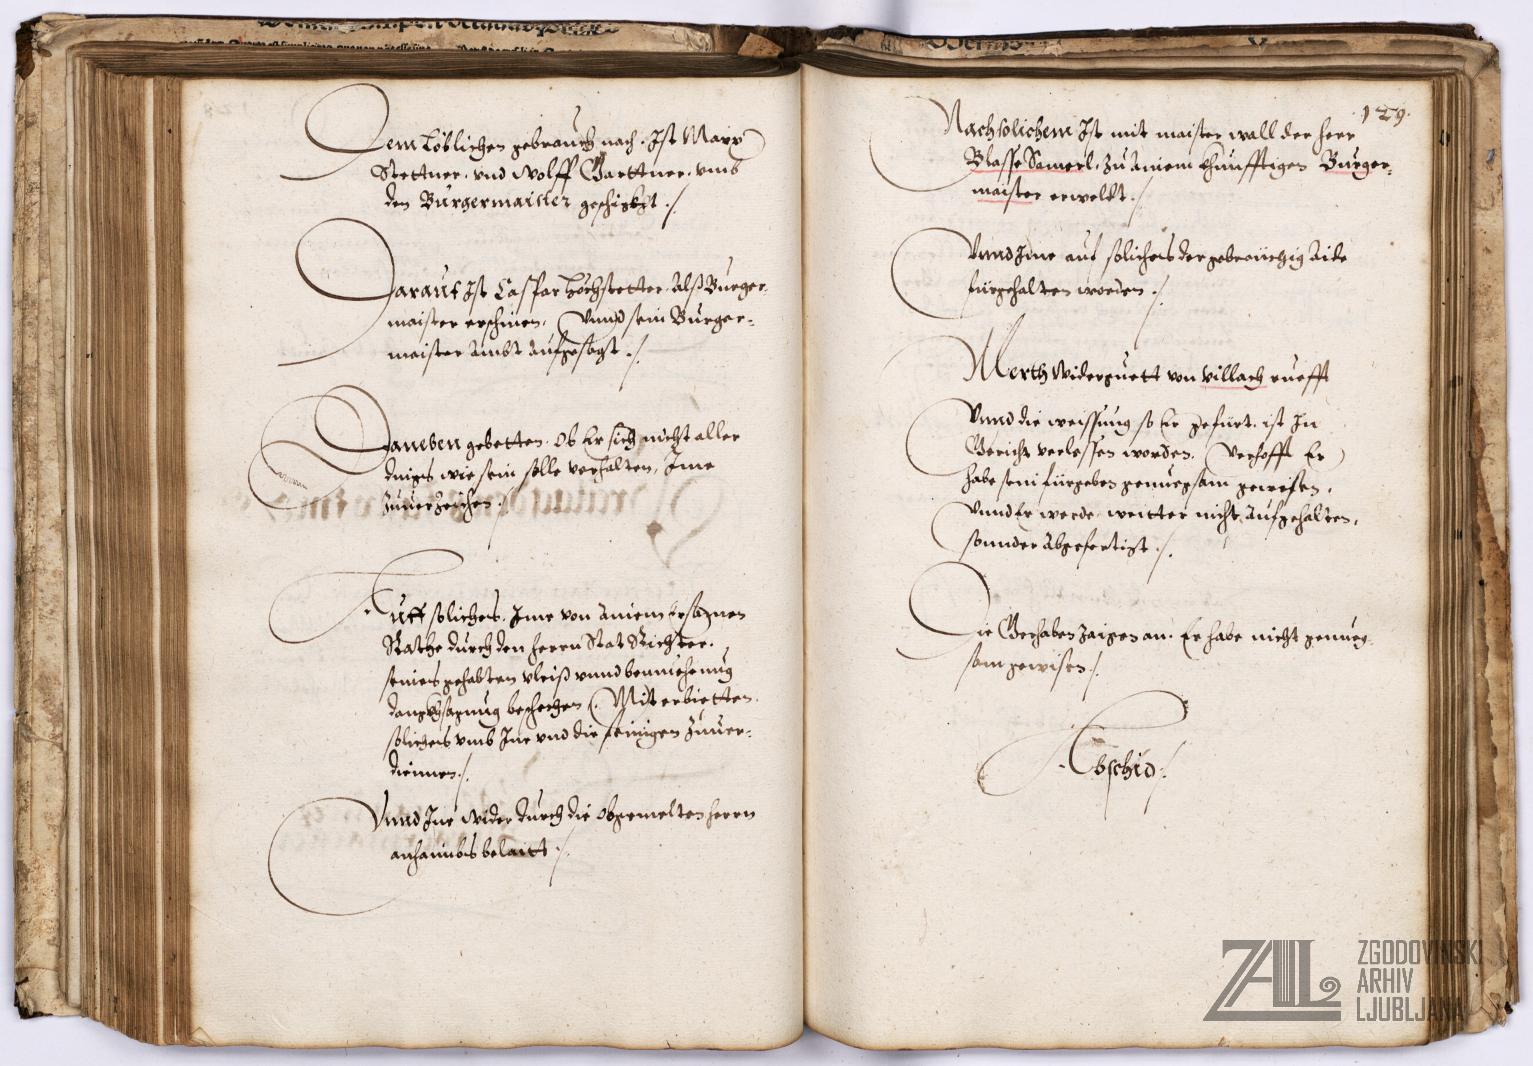 Dem Löblichen gebrauch nach. Ist Marx
Stettner. vnd Wolff Garttner. vmb
den Burgermaister geschickht ./.
Darauf Ist Caspar Höchstetter. Alß Burger-
maister erschinen. Vnnd sein Burger-
maister Ambt Aufgesagt ./.
Daneben gebetten. Ob Er sich nicht aller
dings wie sein solle verhalten, Ime
Zuuerzeichen ./.
Auff soliches. Ime von Ainem Ersamen
Rathe durch den herrn Stat Richter.
seines gehabten vleiß vnnd bemüehung
danckhsagung beschechen /. Mit erbietten.
soliches vmb Ine vnd die seinigen Zuuer-
diennen ./.
Vnnd Ine wider durch die Obgemelten herrn
anhaimbs belaitt ./.
129.
Nach solichem Ist mit maister wall der herr
Blasse Samerl. Zu Ainem khunfftigen Burger-
maister erwelt ./.
Vnnd Ime auf soliches der gebreüchig Aide
fürgehalten worden ./.
Merth Widerguett von Villach ruefft
Vnnd die weissung so Er gefürt. ist In
Gericht verlessen worden. Verhofft Er
habe sein fürgeben genuegsam gewisen.
Vnnd Er werde weitter nicht Aufgehalten,
sonnder Abgefertigt ./.
Die Gerhaben Zaigen an. Er habe nicht genueg-
sam gewisen ./.
Abschid ./
ZAL
ZGODOVINSKI
ARHIV
LJUBLJANA